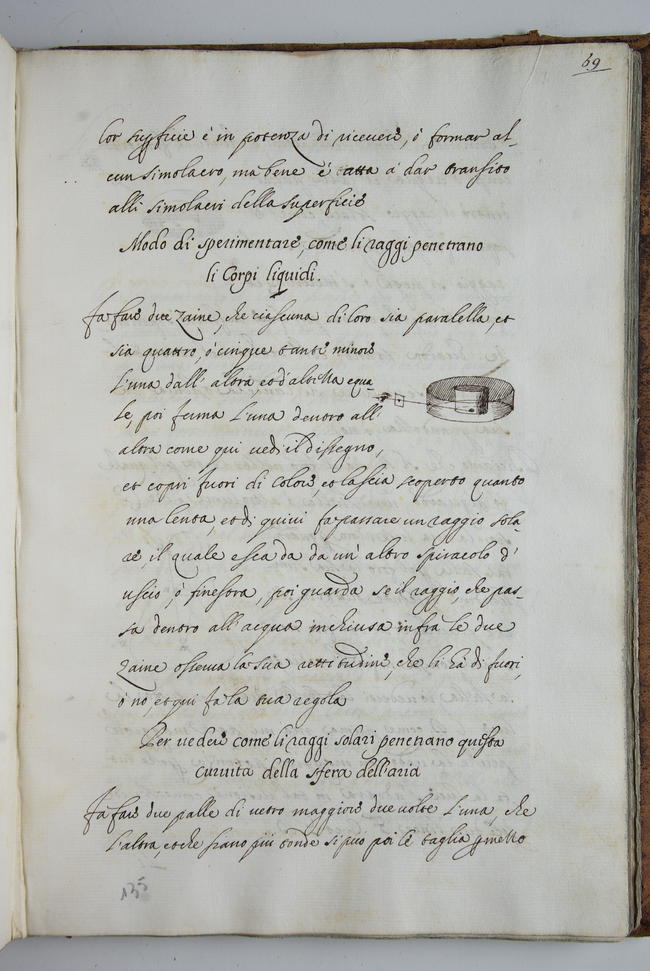 69
lor supficie è in potenza di riceuere, ò formar al-
cun simolacro, ma bene è atta à dar transito
alli simolacri della superficie
Modo di sperimentare, come li raggi penetrano
li Corpi liquidi.
Fa fare due Zaine, che ciascuna di loro sia paralella, et
sia quattro, ò cinque tanti minore
l'una dall' altra, et d'altezza equa-
le, poi ferma l'una dentro all'
altra come qui uedi il dissegno,
et copri fuori di colore, et lascia scoperto quanto
una lenta, et di quiui fa passare un raggio sola-
re il quale esca da da un' altro spiracolo d'
uscio, ò finestra, poi guarda se il raggio, che pas-
sa dentro all' acqua inchiusa infra le due
Zaine osserua la sua rettitudine, che li hà di fuori,
ò nò, et qui fa la tua regola
Per uedere come li raggi solari penetrano questa
curuità della sfera dell'aria
Fa fare due palle di uetro maggiore due uolte l'una, che
l'altra, et che siano più tonde si può poi le taglia p mezzo
135